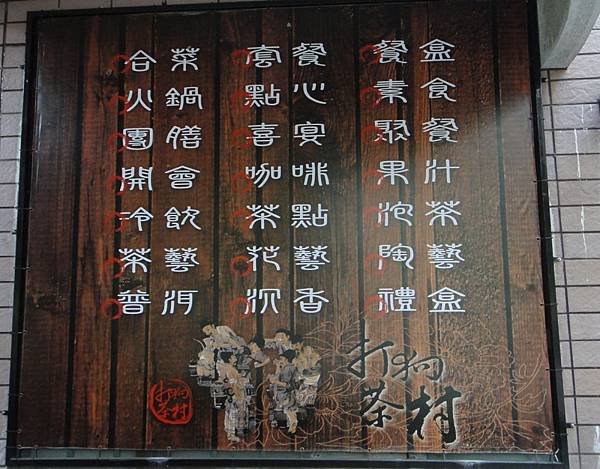 合菜 套餐 餐盒
火鍋 點心 素食
團膳 喜宴 聚餐
開會 咖啡 果汁
冷飲 茶點 泡茶
茶藝 花藝 陶藝
普洱 沉香 禮盒
打狗茶村
打狗茶村